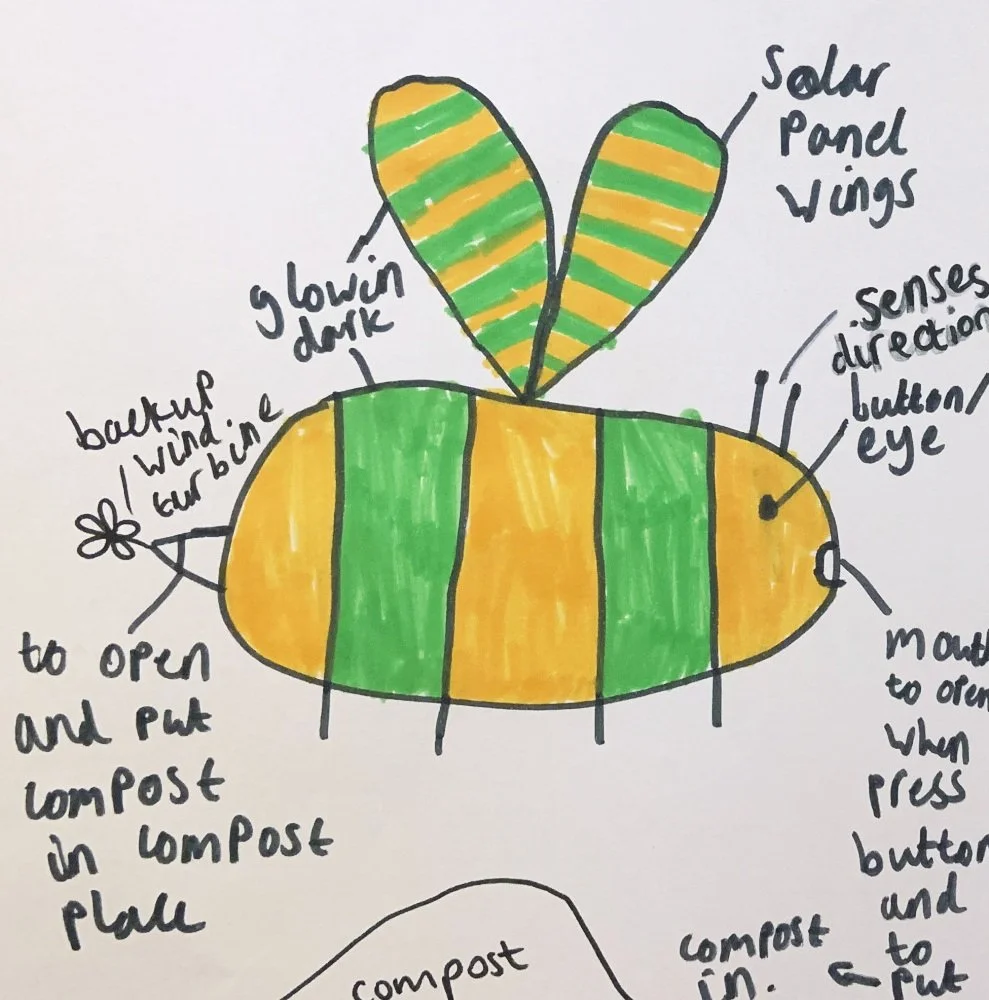 Solar
Panel
Wings
glowin
dark
senses
direction
button/
eye
backup
wind
turbine
to open
and put
compost
in compost
place
mouth
to open
when
press
button
and
to
put
compost
in.
compost